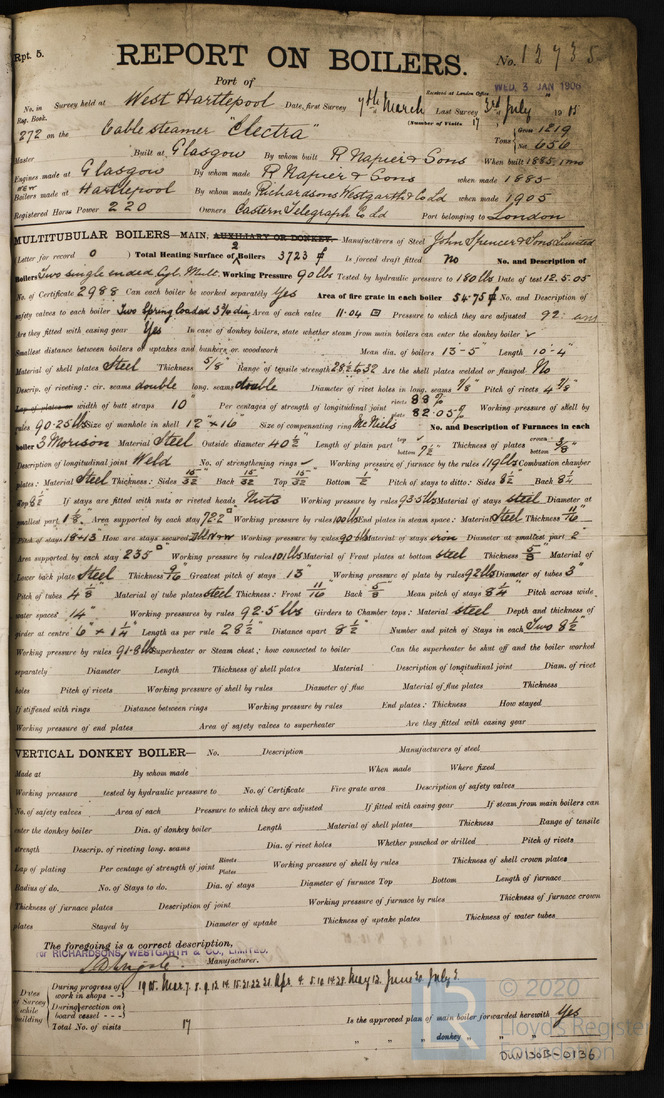 Rpt. 5.
REPORT ON BOILERS.
No. 12735
Port of
Received at London Office WED. 3 JAN 1906
No. in Survey held at West Hartlepool Date, first Survey 7th March Last Survey 3rd July 1905
Reg. Book. (Number of Visits 17)
272 on the Cable steamer "Electra" Tons Gross 1219 Net 656
Master Built at Glasgow By whom built R Napier & Sons When built 1885
Engines made at Glasgow By whom made R Napier & Sons when made 1885
NEW Boilers made at Hartlepool By whom made Richardsons Westgarth & Co Ld when made 1905
Registered Horse Power 220 Owners Eastern Telegraph Co Ld Port belonging to London
MULTITUBULAR BOILERS—MAIN, AUXILIARY OR DONKEY.— Manufacturers of Steel John Spencer & Sons Limited
Letter for record 0 ) Total Heating Surface of 2 Boilers 3723 Is forced draft fitted No No. and Description of
Boilers Two single ended Cyl. Mult. Working Pressure 90 lbs Tested by hydraulic pressure to 180 lbs Date of test 12.5.05
No. of Certificate 2988 Can each boiler be worked separately Yes Area of fire grate in each boiler 54.75 No. and Description of
safety valves to each boiler Two Spring loaded 3¾ dia Area of each valve 11.04 Pressure to which they are adjusted 92
Are they fitted with easing gear Yes In case of donkey boilers, state whether steam from main boilers can enter the donkey boiler ✓
Smallest distance between boilers or uptakes and bunkers or woodwork Mean dia. of boilers 13-5" Length 10-4"
Material of shell plates Steel Thickness 5/8" Range of tensile strength 28½ to 32 Are the shell plates welded or flanged No
Descrip. of riveting: cir. seams double long. seams double Diameter of rivet holes in long. seams 7/8" Pitch of rivets 4 7/8"
Lap of plates or width of butt straps 10" Per centages of strength of longitudinal joint rivets 88% plate 82.05% Working pressure of shell by
rules 90.25 lbs Size of manhole in shell 12" x 16" Size of compensating ring McNeils No. and Description of Furnaces in each
boiler 3 Morison Material Steel Outside diameter 40½ Length of plain part top ✓ bottom 7½" Thickness of plates crown bottom 3/8"
Description of longitudinal joint Weld No. of strengthening rings ✓ Working pressure of furnace by the rules 119 lbs Combustion chamber
plates: Material Steel Thickness: Sides 15/32 Back 15/32 Top 15/32 Bottom ½ Pitch of stays to ditto: Sides 8½ Back 8¼
Top 8½ If stays are fitted with nuts or riveted heads Nuts Working pressure by rules 93.5 lbs Material of stays steel Diameter at
smallest part 1 1/8" Area supported by each stay 72.2 Working pressure by rules 100 lbs End plates in steam space: Material Steel Thickness 11/16
Pitch of stays 18 x 13 How are stays secured Working pressure by rules 90 lbs Material of stays iron Diameter at smallest part 2
Area supported by each stay 235 Working pressure by rules 101 lbs Material of Front plates at bottom steel Thickness 5/8 Material of
Lower back plate Steel Thickness 9/16 Greatest pitch of stays 13" Working pressure of plate by rules 92 lbs Diameter of tubes 3"
Pitch of tubes 4 1/8 Material of tube plates steel Thickness: Front 11/16 Back 5/8 Mean pitch of stays 8¼ Pitch across wide
water spaces 14" Working pressures by rules 92.5 lbs Girders to Chamber tops: Material steel Depth and thickness of
girder at centre 6" x 1¼ Length as per rule 28½ Distance apart 8½ Number and pitch of Stays in each Two 8½"
Working pressure by rules 91.8 lbs Superheater or Steam chest; how connected to boiler Can the superheater be shut off and the boiler worked
separately Diameter Length Thickness of shell plates Material Description of longitudinal joint Diam. of rivet
holes Pitch of rivets Working pressure of shell by rules Diameter of flue Material of flue plates Thickness
If stiffened with rings Distance between rings Working pressure by rules End plates: Thickness How stayed
Working pressure of end plates Area of safety valves to superheater Are they fitted with easing gear
VERTICAL DONKEY BOILER— No. Description Manufacturers of steel
Made at By whom made When made Where fixed
Working pressure tested by hydraulic pressure to No. of Certificate Fire grate area Description of safety valves
No. of safety valves Area of each Pressure to which they are adjusted If fitted with easing gear If steam from main boilers can
enter the donkey boiler Dia. of donkey boiler Length Material of shell plates Thickness Range of tensile
strength Descrip. of riveting long. seams Dia. of rivet holes Whether punched or drilled Pitch of rivets
Lap of plating Per centage of strength of joint Rivets Plates Working pressure of shell by rules Thickness of shell crown plates
Radius of do. No. of Stays to do. Dia. of stays Diameter of furnace Top Bottom Length of furnace
Thickness of furnace plates Description of joint Working pressure of furnace by rules Thickness of furnace crown
plates Stayed by Diameter of uptake Thickness of uptake plates Thickness of water tubes
The foregoing is a correct description,
For RICHARDSONS, WESTGARTH & CO., LIMITED.
Manufacturer.
Dates of Survey while building
During progress of work in shops - - 1905. Mar. 7. 8. 9. 12. 14. 15. 21. 22. 31. Apr. 4. 5. 10. 14. 28. May 12. June 20. July 3.
During erection on board vessel - - -
Total No. of visits 17
Is the approved plan of main boiler forwarded herewith Yes
" " " donkey " " "
© 2020
Lloyd's Register
Foundation
DUN130B-0136